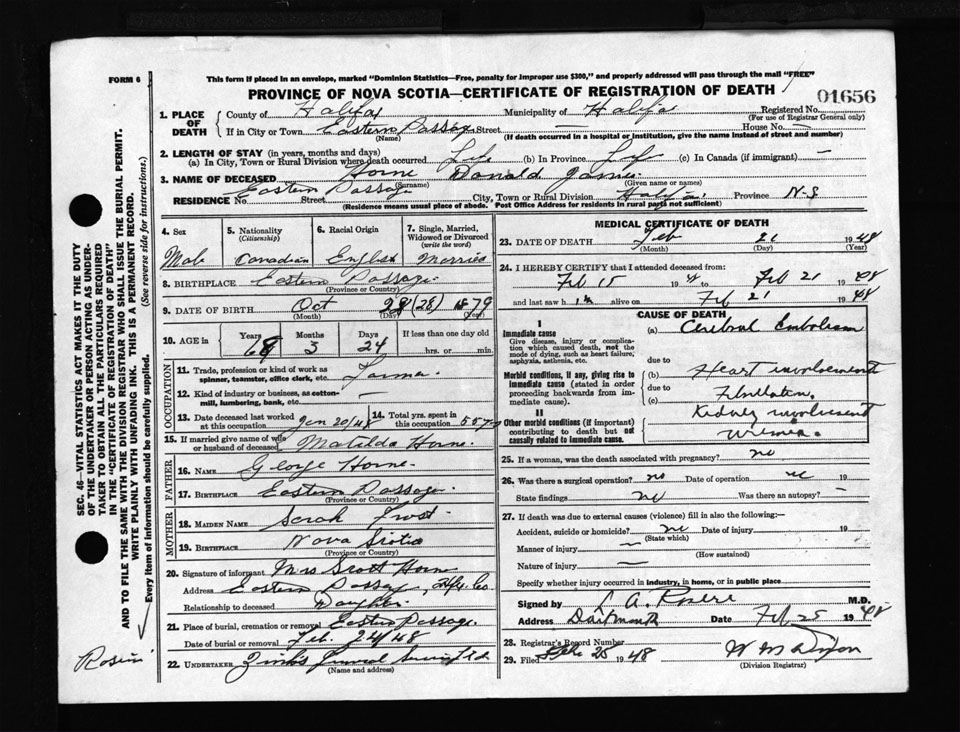 FORM 6
This form if placed in an envelope, marked "Dominion Statistics—Free, penalty for improper use $300," and properly addressed will pass through the mail "FREE"
PROVINCE OF NOVA SCOTIA—CERTIFICATE OF REGISTRATION OF DEATH
01656
1. PLACE OF DEATH
County of Halifax Municipality of Halifax Registered No.
(For use of Registrar General only)
If in City or Town Eastern Passage Street — House No. —
(Name) (If death occurred in a hospital or institution, give the name instead of street and number)
2. LENGTH OF STAY (in years, months and days)
(a) In City, Town or Rural Division where death occurred Life (b) In Province Life (c) In Canada (if immigrant) —
3. NAME OF DECEASED Horne Donald James
(Surname) (Given name or names)
RESIDENCE No. Eastern Passage Street City, Town or Rural Division Halifax Province N-S
(Residence means usual place of abode. Post Office Address for residents in rural parts not sufficient)
4. Sex Male
5. Nationality (Citizenship) Canadian
6. Racial Origin English
7. Single, Married, Widowed or Divorced (write the word) Married
8. BIRTHPLACE Eastern Passage
(Province or Country)
9. DATE OF BIRTH Oct 28 (28) 1879
(Month) (Day) (Year)
10. AGE in Years 68 Months 3 Days 24 If less than one day old
hrs. or min.
OCCUPATION
11. Trade, profession or kind of work as spinner, teamster, office clerk, etc.
12. Kind of industry or business, as cotton-mill, lumbering, bank, etc. —
13. Date deceased last worked at this occupation Jan 20/48
14. Total yrs. spent in this occupation 55
15. If married give name of wife or husband of deceased Matilda Horne
FATHER
16. NAME George Horne
17. BIRTHPLACE Eastern Passage
(Province or Country)
MOTHER
18. MAIDEN NAME Sarah
19. BIRTHPLACE Nova Scotia
(Province or Country)
20. Signature of informant Mrs Scott Horne
Address Eastern Passage, Hfx. Co.
Relationship to deceased Daughter
21. Place of burial, cremation or removal Eastern Passage
Date of burial or removal Feb. 24/48
22. UNDERTAKER Zink's Funeral Service Ltd
(Name and address)
MEDICAL CERTIFICATE OF DEATH
23. DATE OF DEATH Feb 21 1948
(Month) (Day) (Year)
24. I HEREBY CERTIFY that I attended deceased from:
Feb 15 19 to Feb 21 1948
and last saw h alive on Feb 21 1948
CAUSE OF DEATH
I
Immediate cause
Give disease, injury or complication which caused death, not the mode of dying, such as heart failure, asphyxia, asthenia, etc.
(a) Cerebral Embolism
due to
Morbid conditions, if any, giving rise to immediate cause (stated in order proceeding backwards from immediate cause).
(b) Heart involvement
due to
(c) Fibrillation
II
Other morbid conditions (if important) contributing to death but not causally related to immediate cause.
Kidney involvement
uremia.
25. If a woman, was the death associated with pregnancy? no
26. Was there a surgical operation? no Date of operation 19
State findings no Was there an autopsy? —
27. If death was due to external causes (violence) fill in also the following:—
Accident, suicide or homicide? no Date of injury 19
(State which)
Manner of injury —
(How sustained)
Nature of injury —
Specify whether injury occurred in industry, in home, or in public place
Signed by M.D.
Address Dartmouth Date Feb 25 1948
28. Registrar's Record Number
29. Filed 25 1948
SEC. 46—VITAL STATISTICS ACT MAKES IT THE DUTY
OF THE UNDERTAKER OR PERSON ACTING AS UNDER-
TAKER TO OBTAIN ALL THE PARTICULARS REQUIRED
IN THE "CERTIFICATE OF REGISTRATION OF DEATH"
AND TO FILE THE SAME WITH THE DIVISION REGISTRAR WHO SHALL ISSUE THE BURIAL PERMIT.
WRITE PLAINLY WITH UNFADING INK. THIS IS A PERMANENT RECORD.
Every item of information should be carefully supplied. (See reverse side for instructions.)